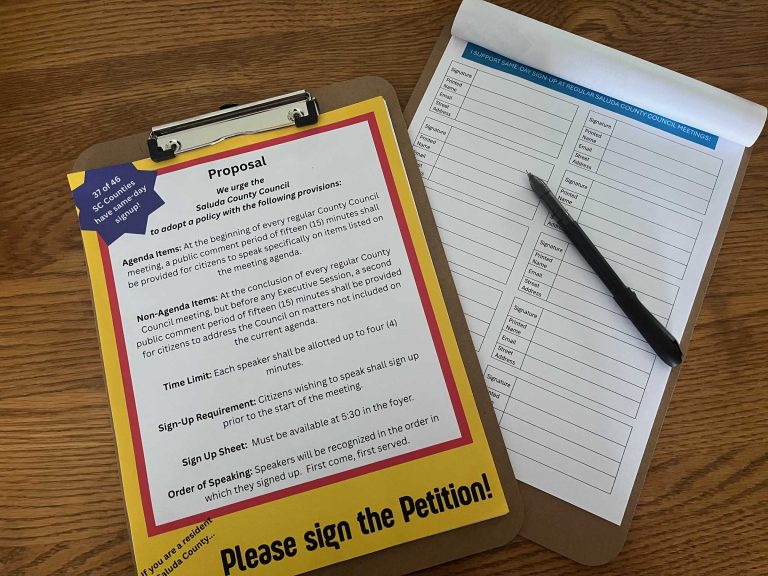 37 of 46
SC Counties
have same-day
signup!
Proposal
We urge the
Saluda County Council
to adopt a policy with the following provisions:
Agenda Items: At the beginning of every regular County Council
meeting, a public comment period of fifteen (15) minutes shall
be provided for citizens to speak specifically on items listed on
the meeting agenda.
Non-Agenda Items: At the conclusion of every regular County
Council meeting, but before any Executive Session, a second
public comment period of fifteen (15) minutes shall be provided
for citizens to address the Council on matters not included on
the current agenda.
Time Limit: Each speaker shall be allotted up to four (4)
minutes.
Sign-Up Requirement: Citizens wishing to speak shall sign up
prior to the start of the meeting.
Sign Up Sheet: Must be available at 5:30 in the foyer.
Order of Speaking: Speakers will be recognized in the order in
which they signed up. First come, first served.
If you are a resident
Saluda County...
Please sign the Petition!
I SUPPORT SAME-DAY SIGN-UP AT REGULAR SALUDA COUNTY COUNCIL MEETINGS!
Signature
Printed
Name
Email
Street
Address
Signature
Printed
Name
Email
Signature
Printed
Name
Email
Street
Address
Signature
Printed
Name
Email
Signature
Printed
Name
Email
Street
Address
Signature
Printed
Name
Email
Street
Address
Signature
Name
Email
Street
Address